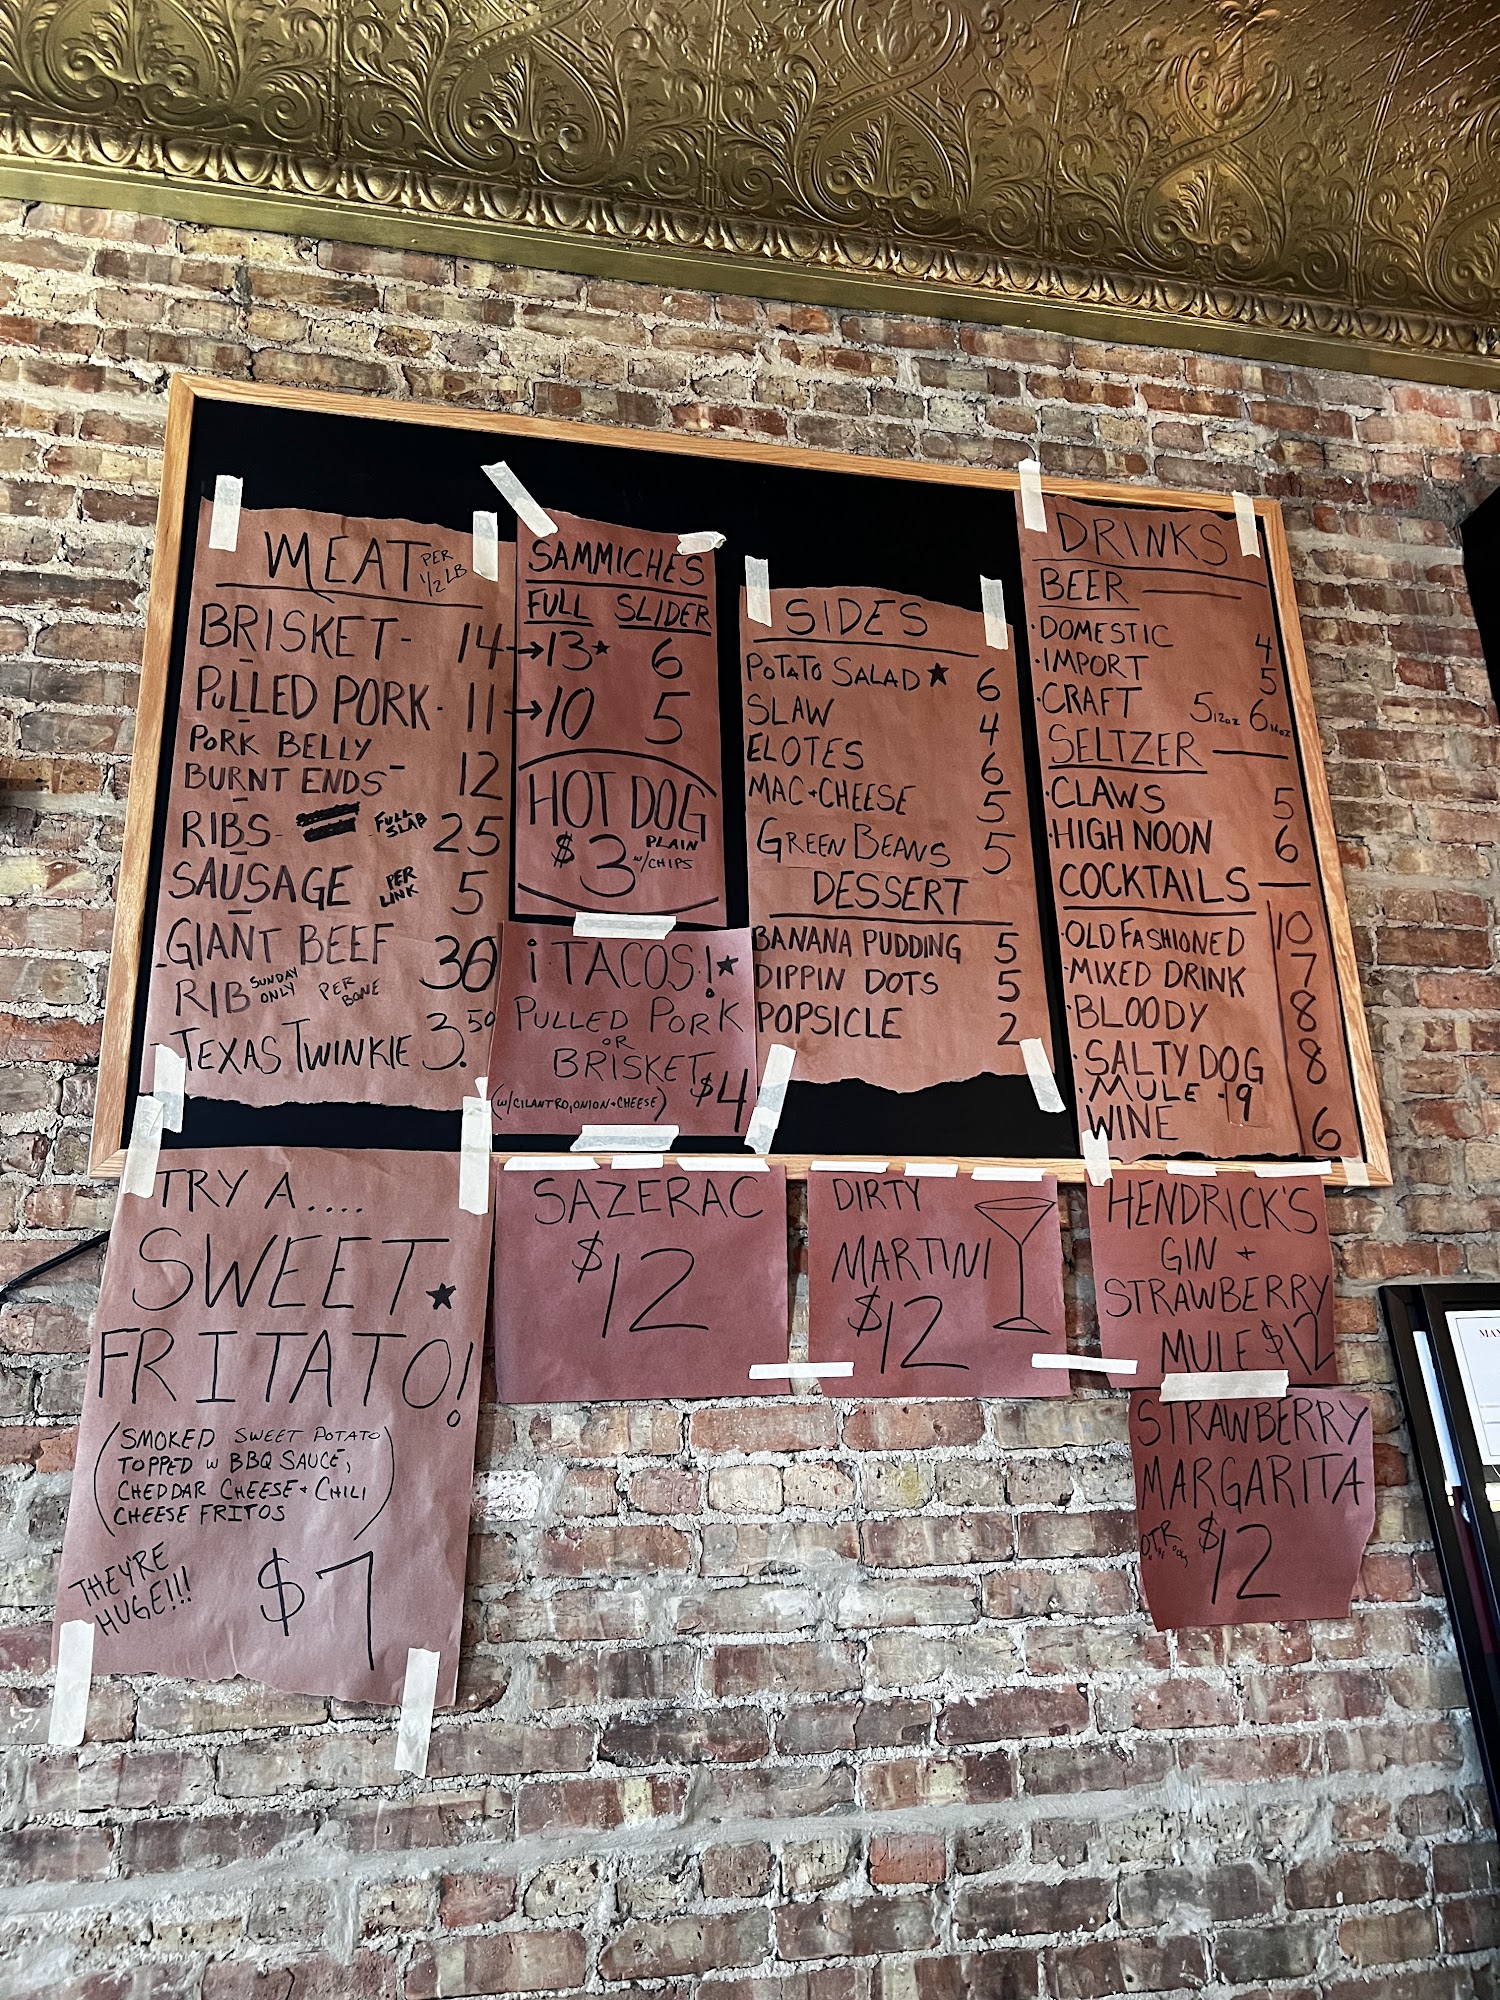 MEAT PER 1/2 LB
BRISKET- 14
PULLED PORK- 11
PORK BELLY
BURNT ENDS- 12
RIBS- FULL SLAB 25
SAUSAGE PER LINK 5
GIANT BEEF 30
RIB SUNDAY ONLY PER BONE
TEXAS TWINKIE 3.50
SAMMICHES
FULL SLIDER
→13★ 6
→10 5
HOT DOG
$3 PLAIN W/CHIPS
¡TACOS!★
PULLED PORK
OR
BRISKET $4
(W/CILANTRO,ONION+CHEESE)
SIDES
POTATO SALAD★ 6
SLAW 4
ELOTES 6
MAC+CHEESE 5
GREEN BEANS 5
DESSERT
BANANA PUDDING 5
DIPPIN DOTS 5
POPSICLE 2
DRINKS
BEER
·DOMESTIC 4
·IMPORT 5
·CRAFT 5 12oz 6 16oz
SELTZER
·CLAWS 5
·HIGH NOON 6
COCKTAILS
·OLD FASHIONED 10
·MIXED DRINK 7
·BLOODY 8
·SALTY DOG 8
·MULE -9
WINE 6
TRY A....
SWEET★
FRITATO!
(SMOKED SWEET POTATO
TOPPED W BBQ SAUCE,
CHEDDAR CHEESE + CHILI
CHEESE FRITOS)
THEY'RE
HUGE!!!
$7
SAZERAC
$12
DIRTY
MARTINI
$12
HENDRICK'S
GIN +
STRAWBERRY
MULE $12
STRAWBERRY
MARGARITA
$12